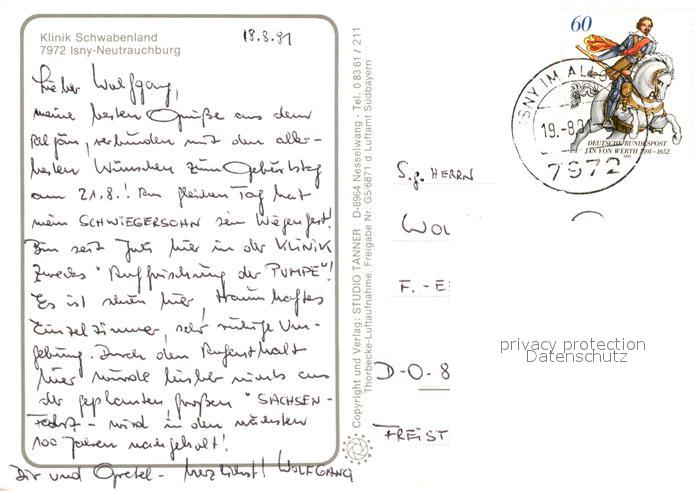 Klinik Schwabenland
7972 Isny-Neutrauchburg
18.8.91
Lieber Wolfgang,
meine besten Grüße aus dem
verbunden mit den aller-
besten Wünschen zum Geburtstag
am 21.8.! Am gleichen Tag hat
mein SCHWIEGERSOHN sein Wiegenfest!
Bin seit Juli hier in der KLINIK
zwecks "Auffrischung der PUMPE"!
Es ist schön hier, traumhaftes
Einzelzimmer, sehr ruhige Um-
gebung. Durch den Aufenthalt
hier wurde bisher nichts aus
der geplanten großen "SACHSEN-
Fahrt" - wird in den nächsten
100 Jahren nachgeholt!
Dir und Gretel - herzlichst! WOLFGANG
Copyright und Verlag: STUDIO TANNER D-8964 Nesselwang · Tel. 0 83 61 / 211
Thorbecke-Luftaufnahme, Freigabe Nr. G5/6871 d. Luftamt Südbayern
60
DEUTSCHE BUNDESPOST
JAN VON WERTH 1591-1652
ISNY IM ALLG
19.-8.91
7972
S.g. HERRN
WOL
F. - E
D-O-8
FREIST
privacy protection
Datenschutz